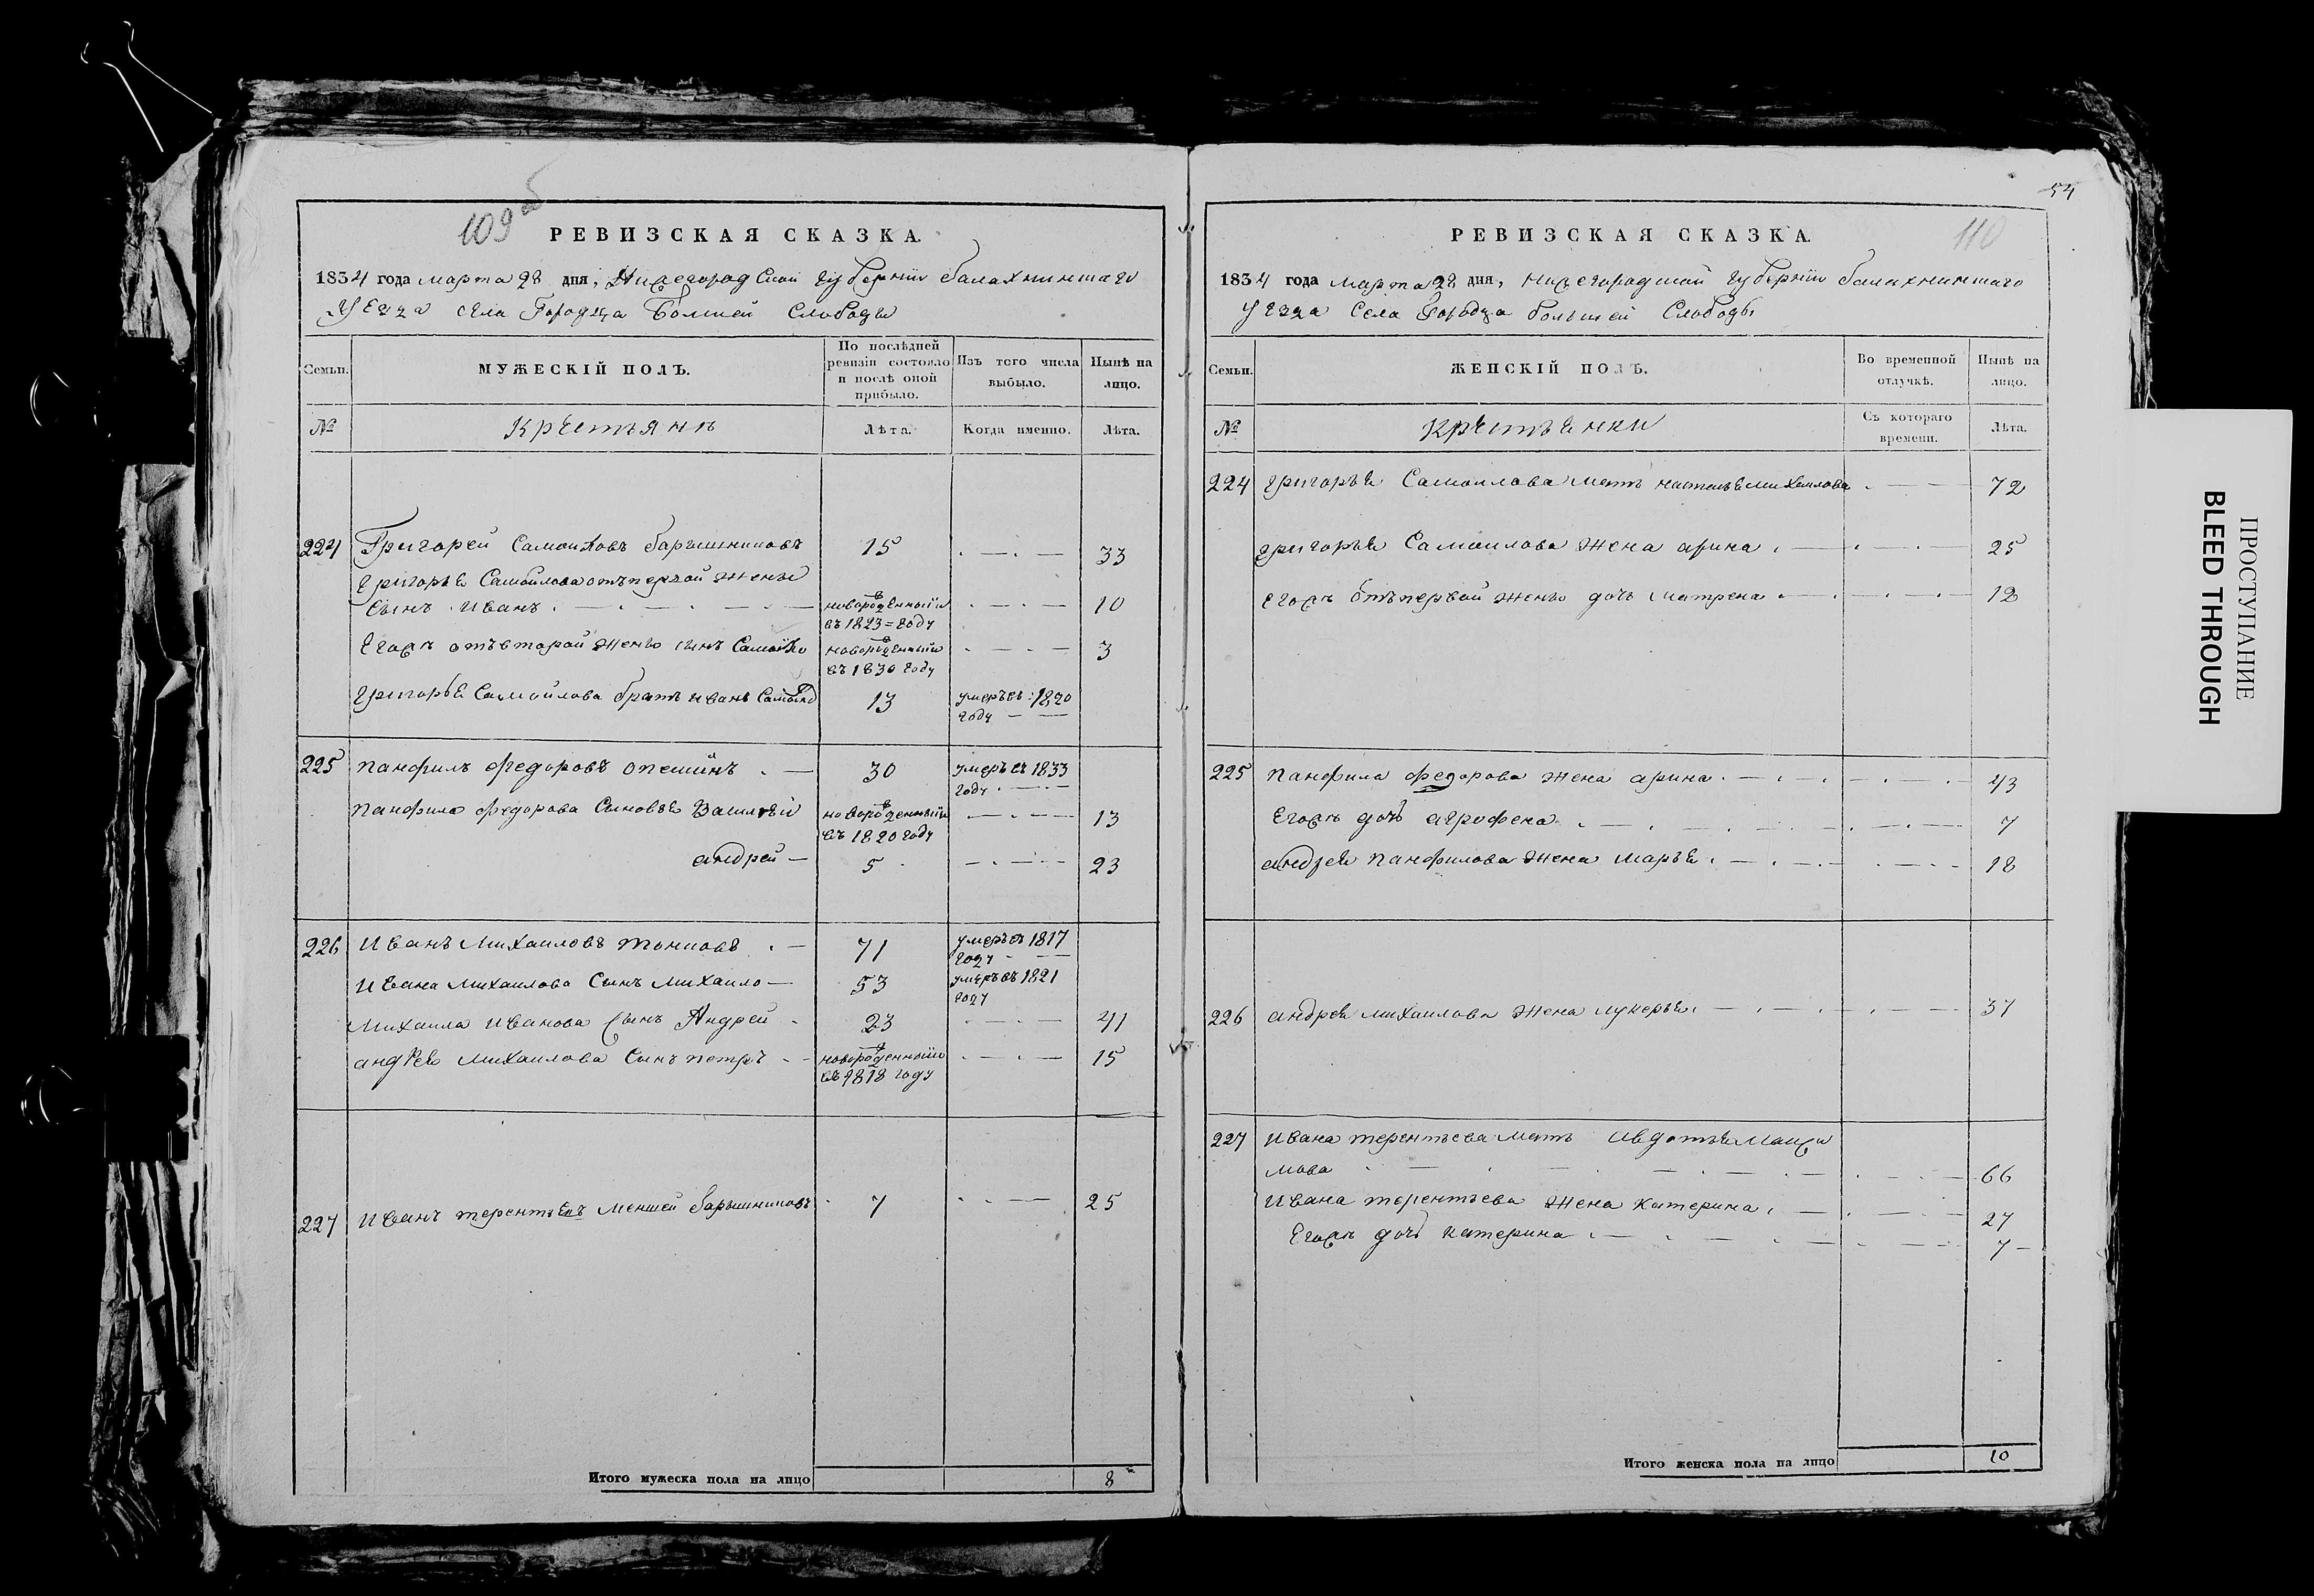 109 об
РЕВИЗСКАЯ СКАЗКА.
1834 года марта 28 дня, Нижегородской губернии балахнинскаго
Уезда села Городца Болшей Слободы
Семьи.
МУЖЕСКІЙ ПОЛЪ.
По послѣдней ревизіи состояло и послѣ оной прибыло.
Изъ того числа выбыло.
Нынѣ на лицо.
№
Крестьянъ
Лѣта.
Когда именно.
Лѣта.
224 Григорей Самоиловъ барышниковъ 15 33
григорья Самоилова отъ первой жены
сынъ Иванъ новорожденный 10
въ 1823 = году
Егожъ отъ второй жены сынъ Самойло новорожденный 3
въ 1830 году
григорья Самойлова братъ иванъ Самойлов 13 умеръ въ 1820
году
225 панфилъ федоровъ опешинъ 30 умеръ въ 1833
году
панфила федорова Сыновья Василий новорожденный 13
въ 1820 году
андрей 5 23
226 Иванъ Михаиловъ тониовъ 71 умеръ въ 1817
году
Ивана Михаилова Сынъ Михаило 53 умеръ въ 1821
году
Михаила Иванова Сынъ Андрей 23 41
андрея Михаилова Сынъ петръ новорожденный 15
въ 1818 году
227 Иванъ терентьевъ меншей барышниковъ 7 25
Итого мужеска пола на лицо 8
54
110
РЕВИЗСКАЯ СКАЗКА.
1834 года марта 28 дня, нижегородской губернии балахнинскаго
уезда Села Городца болшей Слободы
Семьи.
ЖЕНСКІЙ ПОЛЪ.
Во временной отлучкѣ.
Нынѣ на лицо.
№
Крестьянки
Съ котораго времени.
Лѣта.
224 григорья Самоилова мать настасья михаилова 72
григорья Самоилова жена арина 25
Егожъ отъ первой жены дочь матрена 12
225 панфила федорова жена арина 43
Егожъ дочь аграфена 7
андрея панфилова жена марья 18
226 андрея михаилова жена лукерья 37
227 Ивана терентьева мать авдотья Макси
мова 66
Ивана терентьева жена катерина 27
Егожъ дочь катерина 7
Итого женска пола на лицо 10
ПРОСТУПАНИЕ
BLEED THROUGH